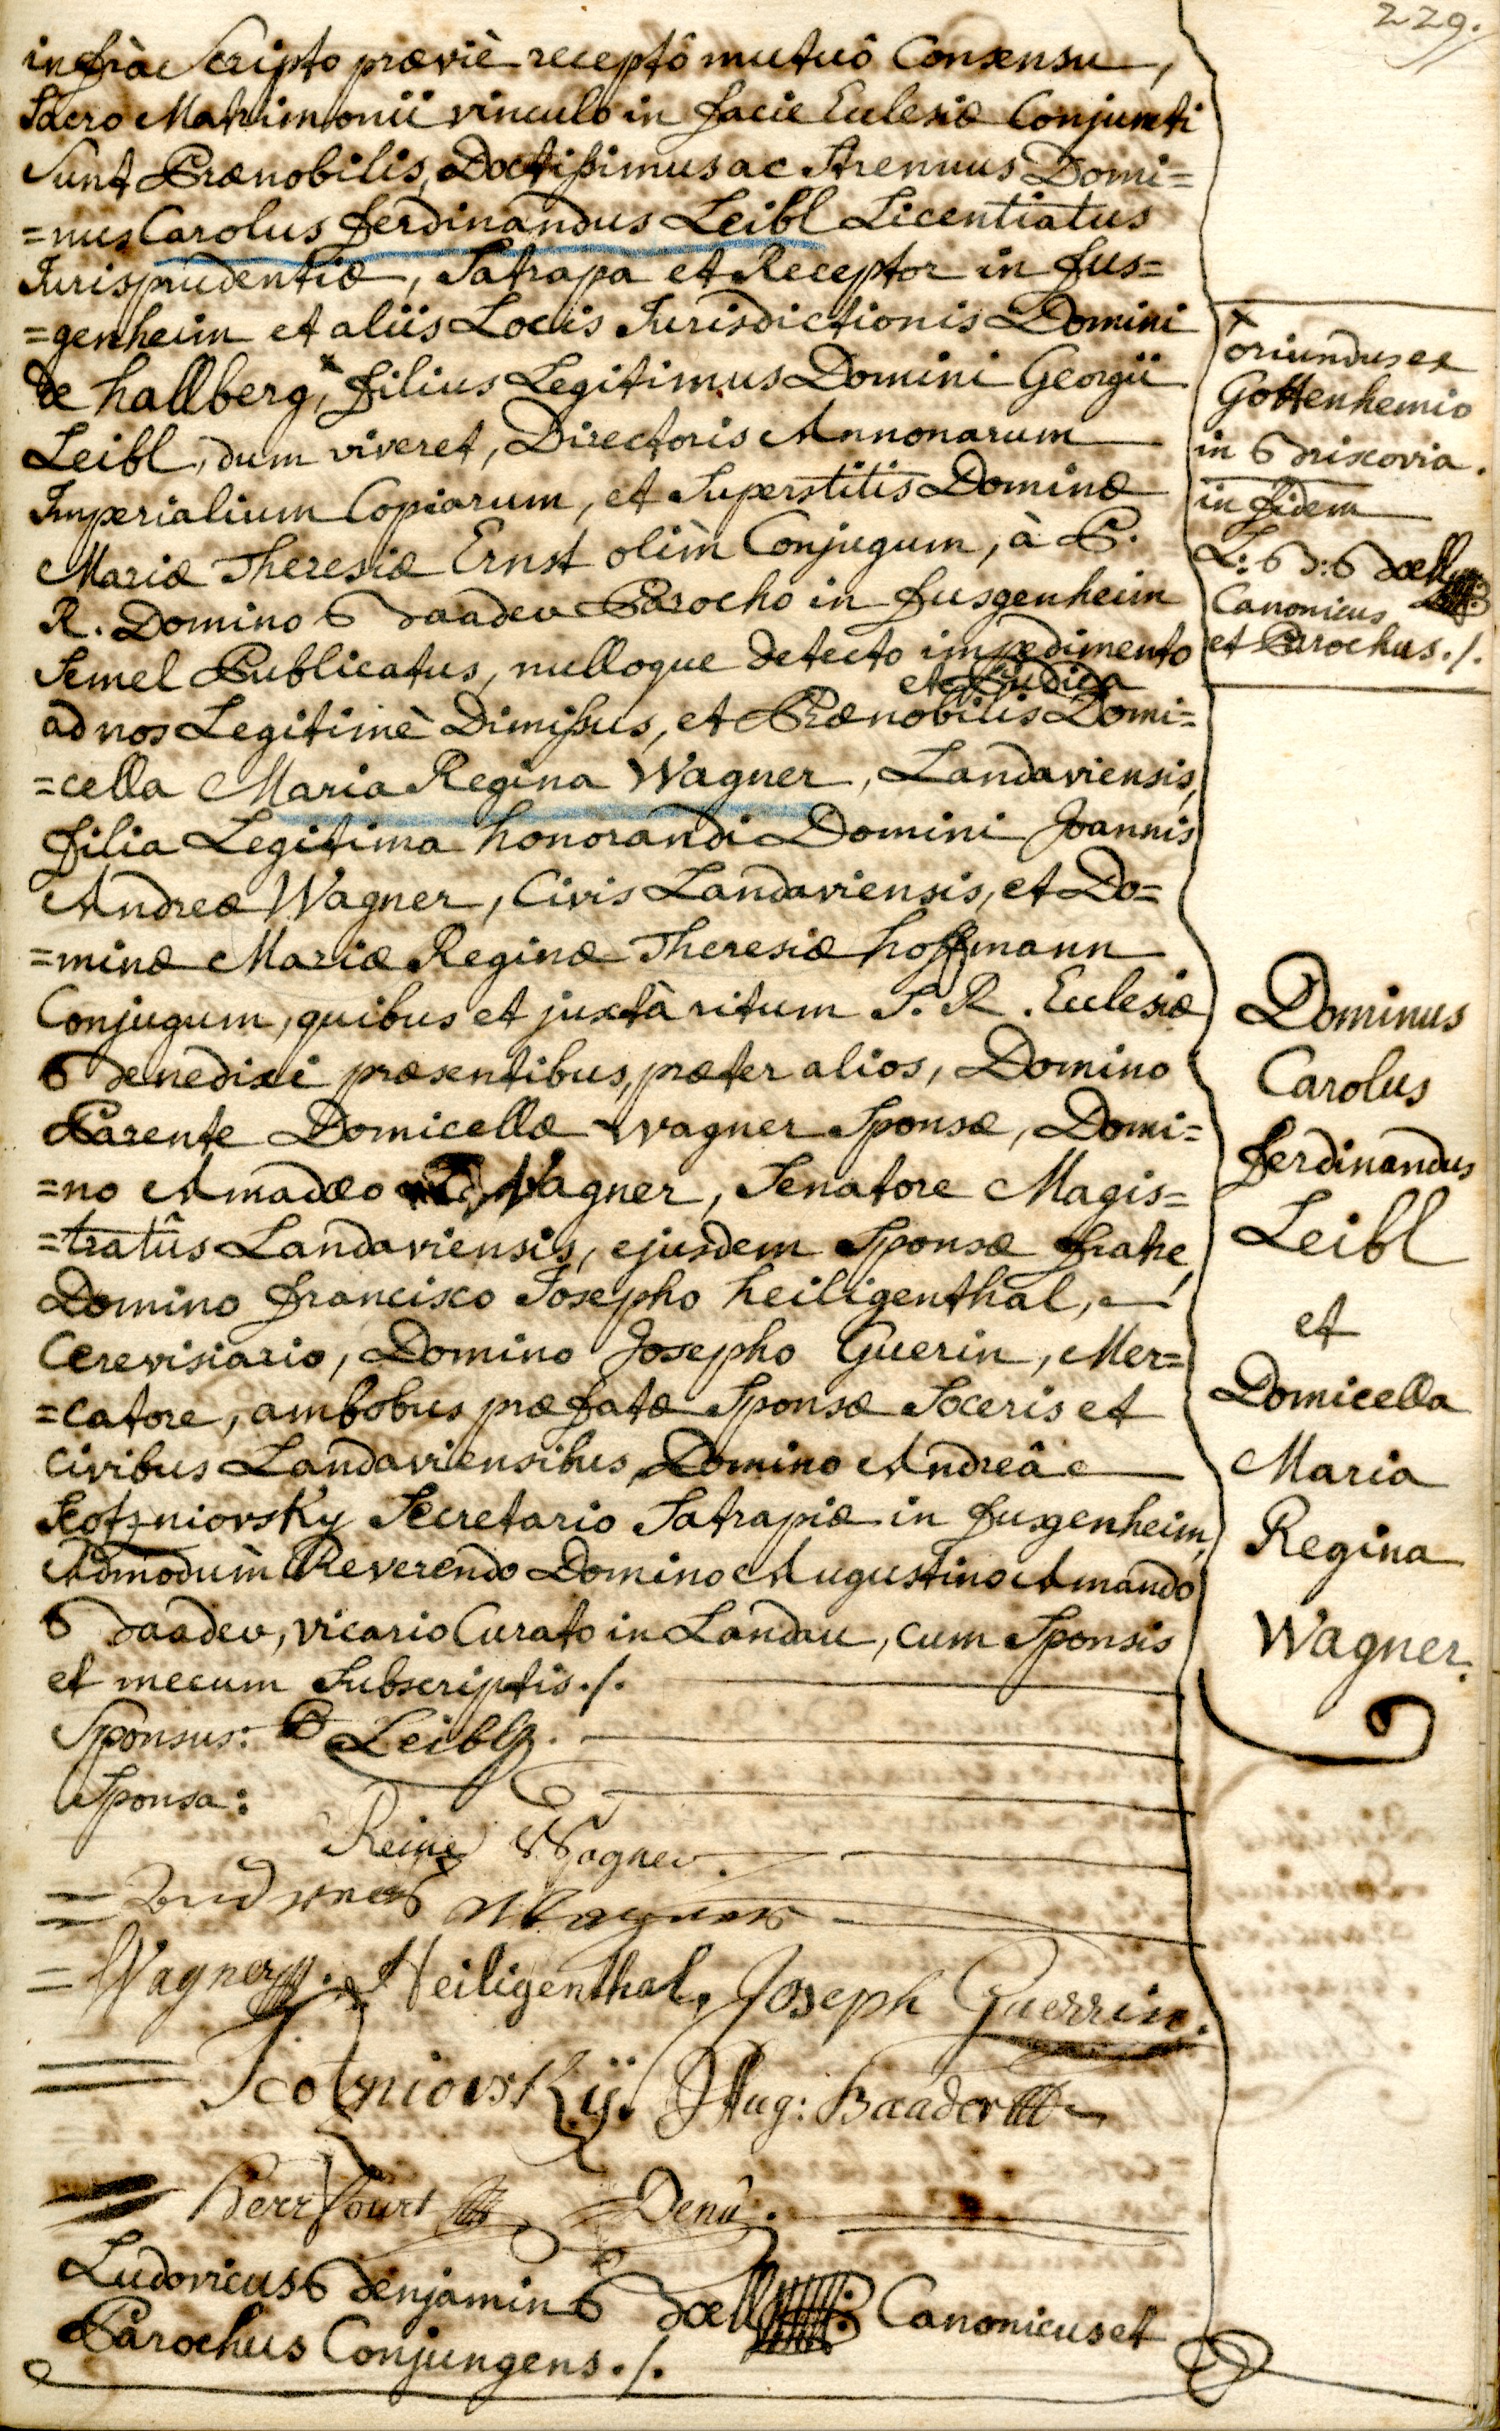 229.
infrà Scripto præviè receptô mutuô Consensu,
Sacro Matrimonii vinculo in facie Ecclesiæ Conjuncti
Sunt Prænobilis, Doctissimus ac Strenuus Domi=
=nus Carolus ferdinandus Leibl Licentiatus
Jurisprudentiæ, Satrapa et Receptor in fus=
=genheim et aliis Locis Jurisdictionis Domini
de hallberg,x filius Legitimus Domini Georgii
Leibl, dum viveret, Directoris Annonarum
Imperialium Copiarum, et Superstitis Dominæ
Mariæ Theresiæ Ernst olìm Conjugum, à P.
R. Domino Baader Parocho in fusgenheim
Semel Publicatus, nulloque detecto impedimento
ad nos Legitimè Dimissus, et Prænobilis et Pudica Domi=
=cella Maria Regina Wagner, Landaviensis,
filia Legitima honorandi Domini Joannis
Andreæ Wagner, Civis Landaviensis, et Do=
=minæ Mariæ Reginæ Theresiæ hoffmann
Conjugum, quibus et juxtà ritum S. R. Ecclesiæ
Benedixi præsentibus, præter alios, Domino
Parente Domicellæ Wagner Sponsæ, Domi=
=no Amadæo Wagner, Senatore Magis=
=tratûs Landaviensis, ejusdem Sponsæ fratre,
Domino francisco Josepho heiligenthal,
Cerevisiario, Domino Josepho Guerin, Mer=
=catore, ambobus præfatæ Sponsæ Soceris et
Civibus Landaviensibus, Domino Andreâ
Scotzniovsky Secretario Satrapiæ in fusgenheim,
Admodùm Reverendo Domino Augustino Amando
Baader, vicario Curato in Landau, cum Sponsis
et mecum Subscriptis./.
Sponsus: Leibl.
Sponsa:
Reine Wagner.
= Andreas Wagner
= Wagner. Heiligenthal, Joseph Guerrin.
= Scotzniovskÿ. Aug: Baader
Denû.
Ludovicus Benjamin Boell Canonicus et
Parochus Conjungens./.
x
oriundus ex
Gottenhemio
in Briscovia.
in fidem
L: B: Boell
Canonicus
et Parochus./.
Dominus
Carolus
ferdinandus
Leibl
et
Domicella
Maria
Regina
Wagner.